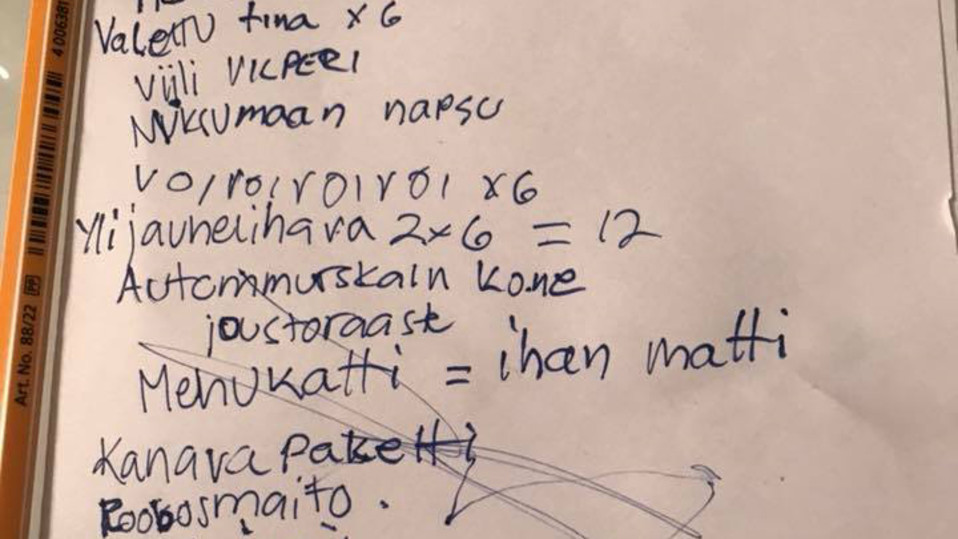 Valettu tina x 6
Viili VILPERI
Nukkumaan napsu
voiroiroiroi x6
Ylijauhelihava 2x6 = 12
Autonmurskain kone
joustoraaste
Mehukatti = ihan matti
Kanava paketti
Rookosmaito .
4 006381
Art. No. 88/22 PP